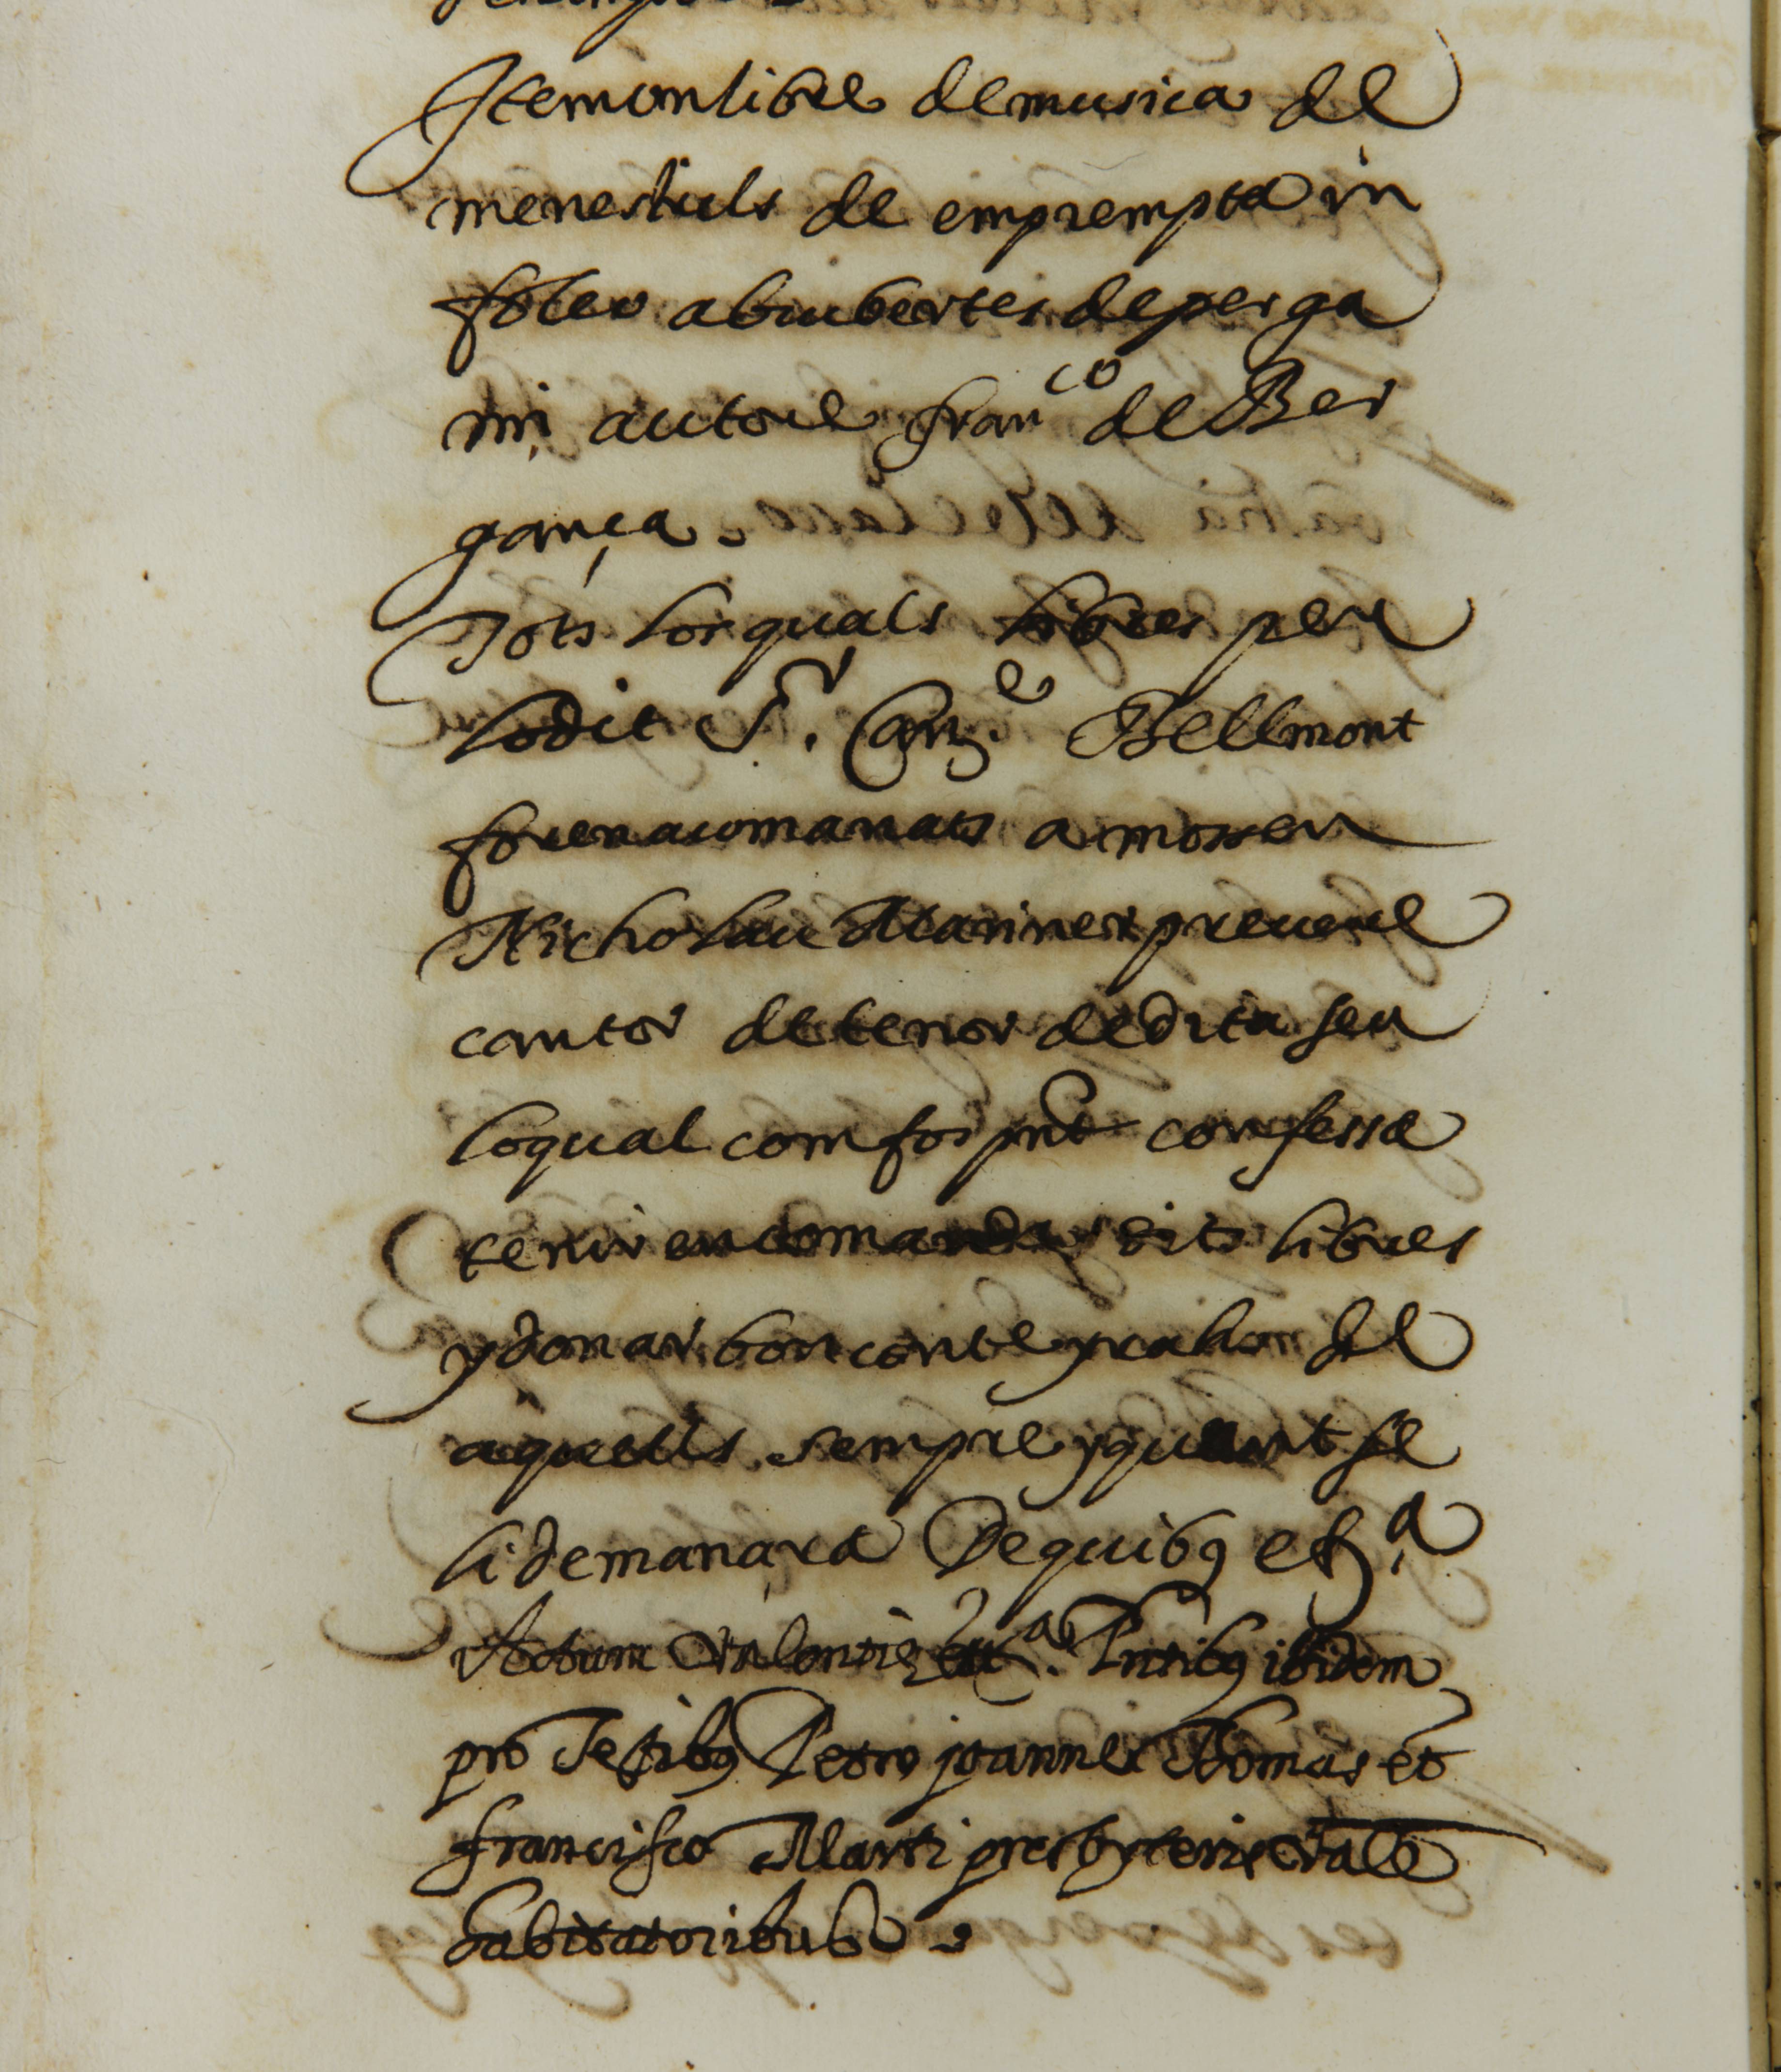 Item un libre de musica de
menestrils de emprempta in
foleo ab cubertes de perga
mi autore fran^co de Ber
gança.
Tots los quals libres per
lo dit S^r. Can^e. Bellmont
foren acomanats a mossen
Nicholau Mariner prevere
cantor de tenor de dita seu
lo qual com fos pnt confessa
tenir en comanda dits libres
y donar bon conte y raho de
aquells sempre y quant se
li demanara De quibus et^a.
Actum Valentie et^a. Pntibus ibidem
pro Testibus Petro joanne Thomas et
francisco Marti presbyteris Vale
habitatoribus.